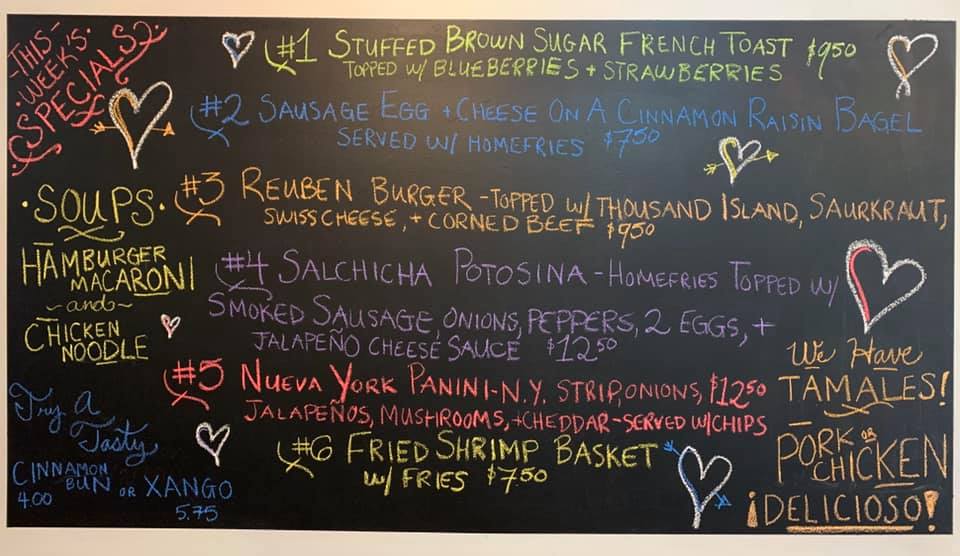 -THIS-
WEEK'S
SPECIALS
#1 STUFFED BROWN SUGAR FRENCH TOAST $9.50
TOPPED W/ BLUEBERRIES + STRAWBERRIES
#2 SAUSAGE EGG + CHEESE ON A CINNAMON RAISIN BAGEL
SERVED W/ HOMEFRIES $7.50
#3 REUBEN BURGER - TOPPED W/ THOUSAND ISLAND, SAURKRAUT,
SWISS CHEESE, + CORNED BEEF $9.50
#4 SALCHICHA POTOSINA - HOMEFRIES TOPPED W/
SMOKED SAUSAGE, ONIONS, PEPPERS, 2 EGGS, +
JALAPEÑO CHEESE SAUCE $12.50
#5 NUEVA YORK PANINI - N.Y. STRIP, ONIONS, $12.50
JALAPEÑOS, MUSHROOMS, + CHEDDAR - SERVED W/ CHIPS
#6 FRIED SHRIMP BASKET
W/ FRIES $7.50
·SOUPS·
HAMBURGER
MACARONI
~and~
CHICKEN
NOODLE
Try A
Tasty
CINNAMON
BUN OR XANGO
4.00 5.75
We Have
TAMALES!
PORK OR
CHICKEN
¡DELICIOSO!